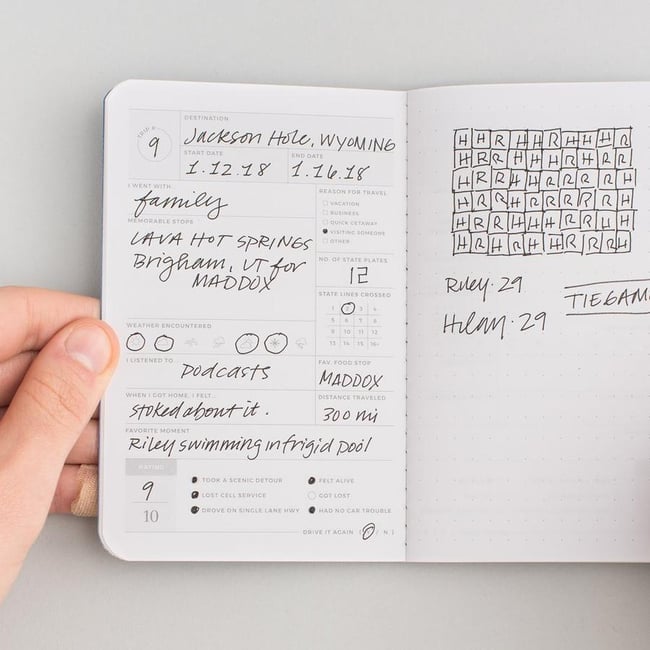 TRIP # 9
DESTINATION
Jackson Hole, WYOMING
START DATE END DATE
1.12.18 1.16.18
I WENT WITH...
family
REASON FOR TRAVEL
VACATION
BUSINESS
QUICK GETAWAY
VISITING SOMEONE
OTHER
MEMORABLE STOPS
LAVA HOT SPRINGS
Brigham, UT for
MADDOX
NO. OF STATE PLATES
12
STATE LINES CROSSED
1 2 3 4
5 6 7 8
9 10 11 12
13 14 15 16+
WEATHER ENCOUNTERED
I LISTENED TO...
Podcasts
FAV. FOOD STOP
MADDOX
WHEN I GOT HOME, I FELT...
stoked about it.
DISTANCE TRAVELED
300 mi
FAVORITE MOMENT
Riley swimming in frigid pool
RATING
9
10
TOOK A SCENIC DETOUR FELT ALIVE
LOST CELL SERVICE GOT LOST
DROVE ON SINGLE LANE HWY HAD NO CAR TROUBLE
DRIVE IT AGAIN [Y / N ]
Riley · 29
Hilary · 29
TIEGAM